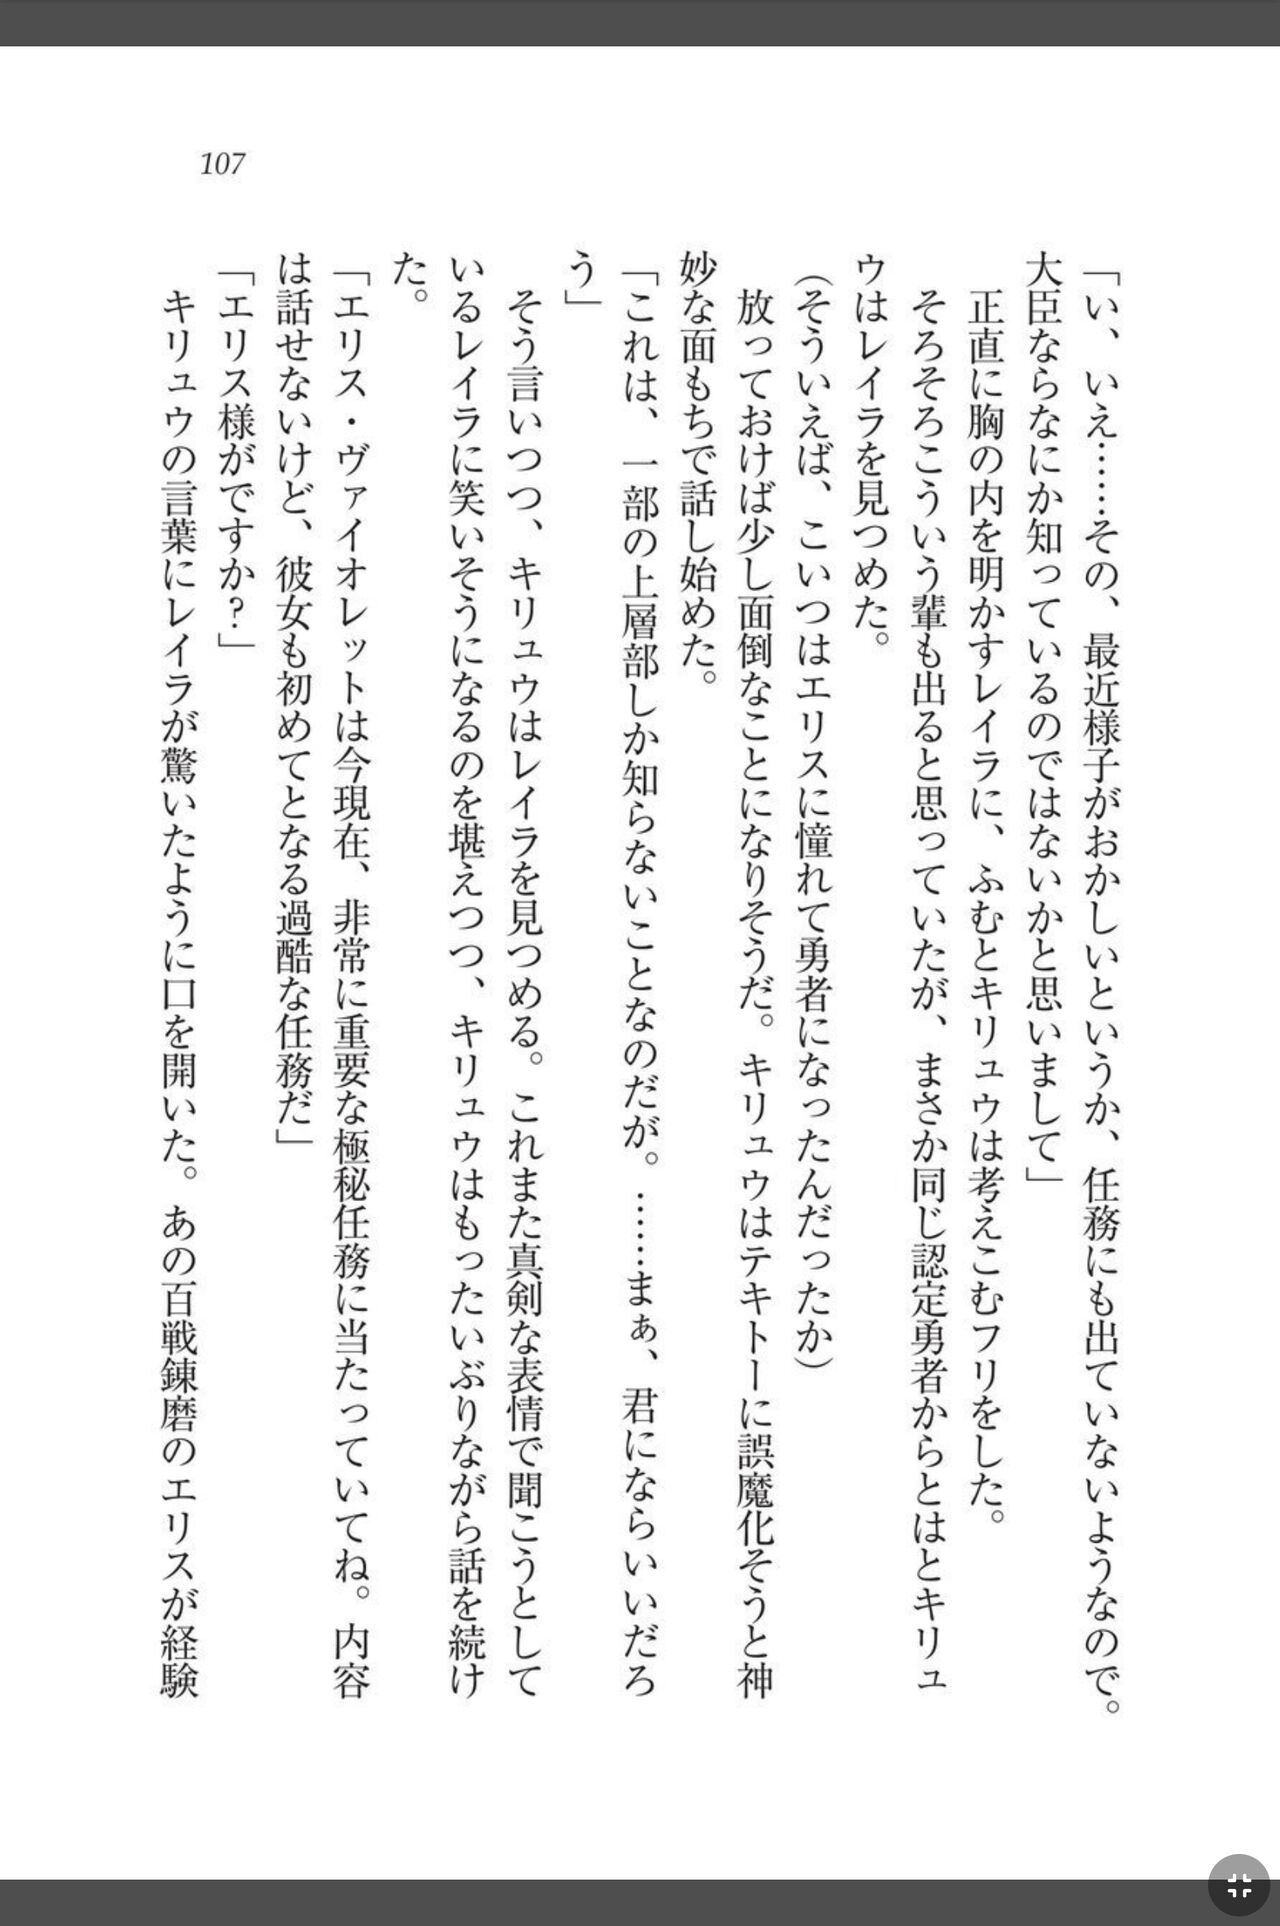 107
「い、いえ……その、最近様子がおかしいというか、任務にも出ていないようなので。
大臣ならなにか知っているのではないかと思いまして」
正直に胸の内を明かすレイラに、ふむとキリュウは考えこむフリをした。
そろそろこういう輩も出ると思っていたが、まさか同じ認定勇者からとはとキリュ
ウはレイラを見つめた。
（そういえば、こいつはエリスに憧れて勇者になったんだったか）
放っておけば少し面倒なことになりそうだ。キリュウはテキトーに誤魔化そうと神
妙な面もちで話し始めた。
「これは、一部の上層部しか知らないことなのだが。……まぁ、君にならいいだろ
う」
そう言いつつ、キリュウはレイラを見つめる。これまた真剣な表情で聞こうとして
いるレイラに笑いそうになるのを堪えつつ、キリュウはもったいぶりながら話を続け
た。
「エリス・ヴァイオレットは今現在、非常に重要な極秘任務に当たっていてね。内容
は話せないけど、彼女も初めてとなる過酷な任務だ」
「エリス様がですか?」
キリュウの言葉にレイラが驚いたように口を開いた。あの百戦錬磨のエリスが経験